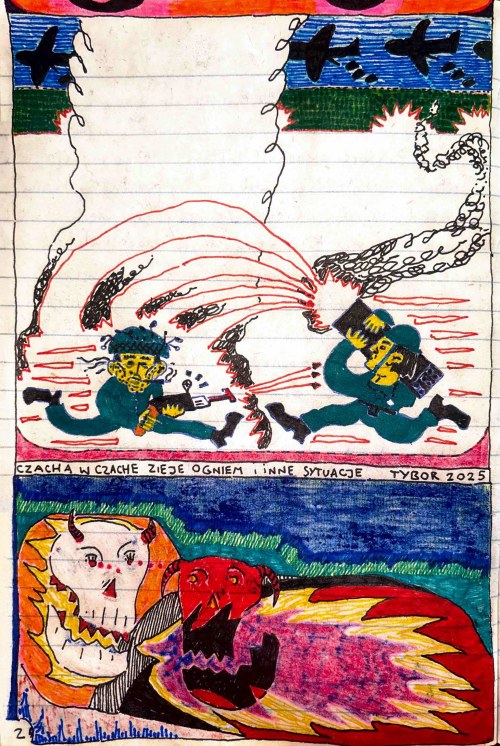 CZACHA W CZACHĘ ZIEJE OGNIEM I INNE SYTUACJE. TYBOR 2025
2